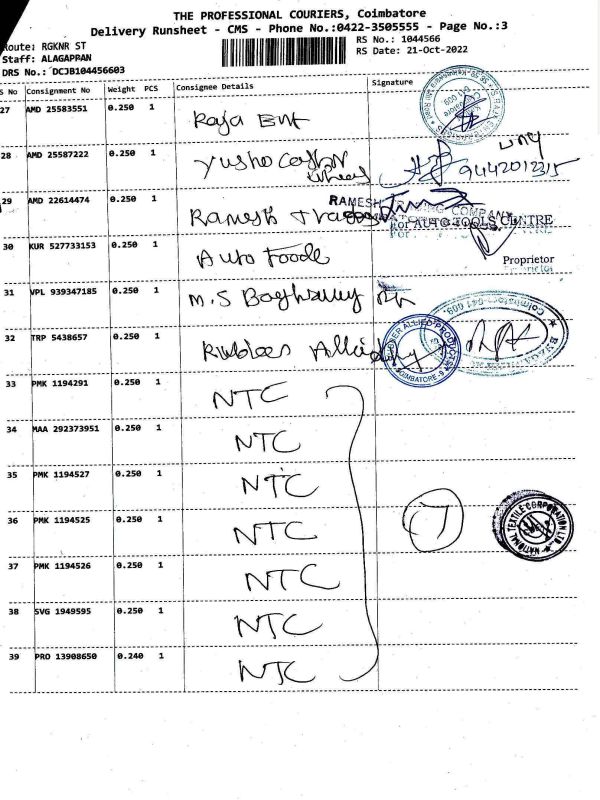 THE PROFESSIONAL COURIERS, Coimbatore
Delivery Runsheet - CMS - Phone No.:0422-3505555 - Page No.:3
Route: RGKNR ST
Staff: ALAGAPPAN
DRS No.: DCJB104456603
RS No.: 1044566
RS Date: 21-Oct-2022
S No Consignment No Weight PCS Consignee Details Signature
27 AMD 25583551 0.250 1 Raja Ent
28 AMD 25587222 0.250 1 9442012315
29 AMD 22614474 0.250 1 Ramesh
RAMESH TRADING COMPANY
For AUTO TOOLS CENTRE
30 KUR 527733153 0.250 1 Auto
Proprietor
31 VPL 939347185 0.250 1 M.S
32 TRP 5438657 0.250 1
ALLIED PRODUCTS
COIMBATORE-9
33 PMK 1194291 0.250 1 NTC
34 MAA 292373951 0.250 1 NTC
35 PMK 1194527 0.250 1 NTC
36 PMK 1194525 0.250 1 NTC
7
NATIONAL TEXTILE CORPORATION LTD.
37 PMK 1194526 0.250 1 NTC
38 SVG 1949595 0.250 1 NTC
39 PRO 13908650 0.240 1 NTC